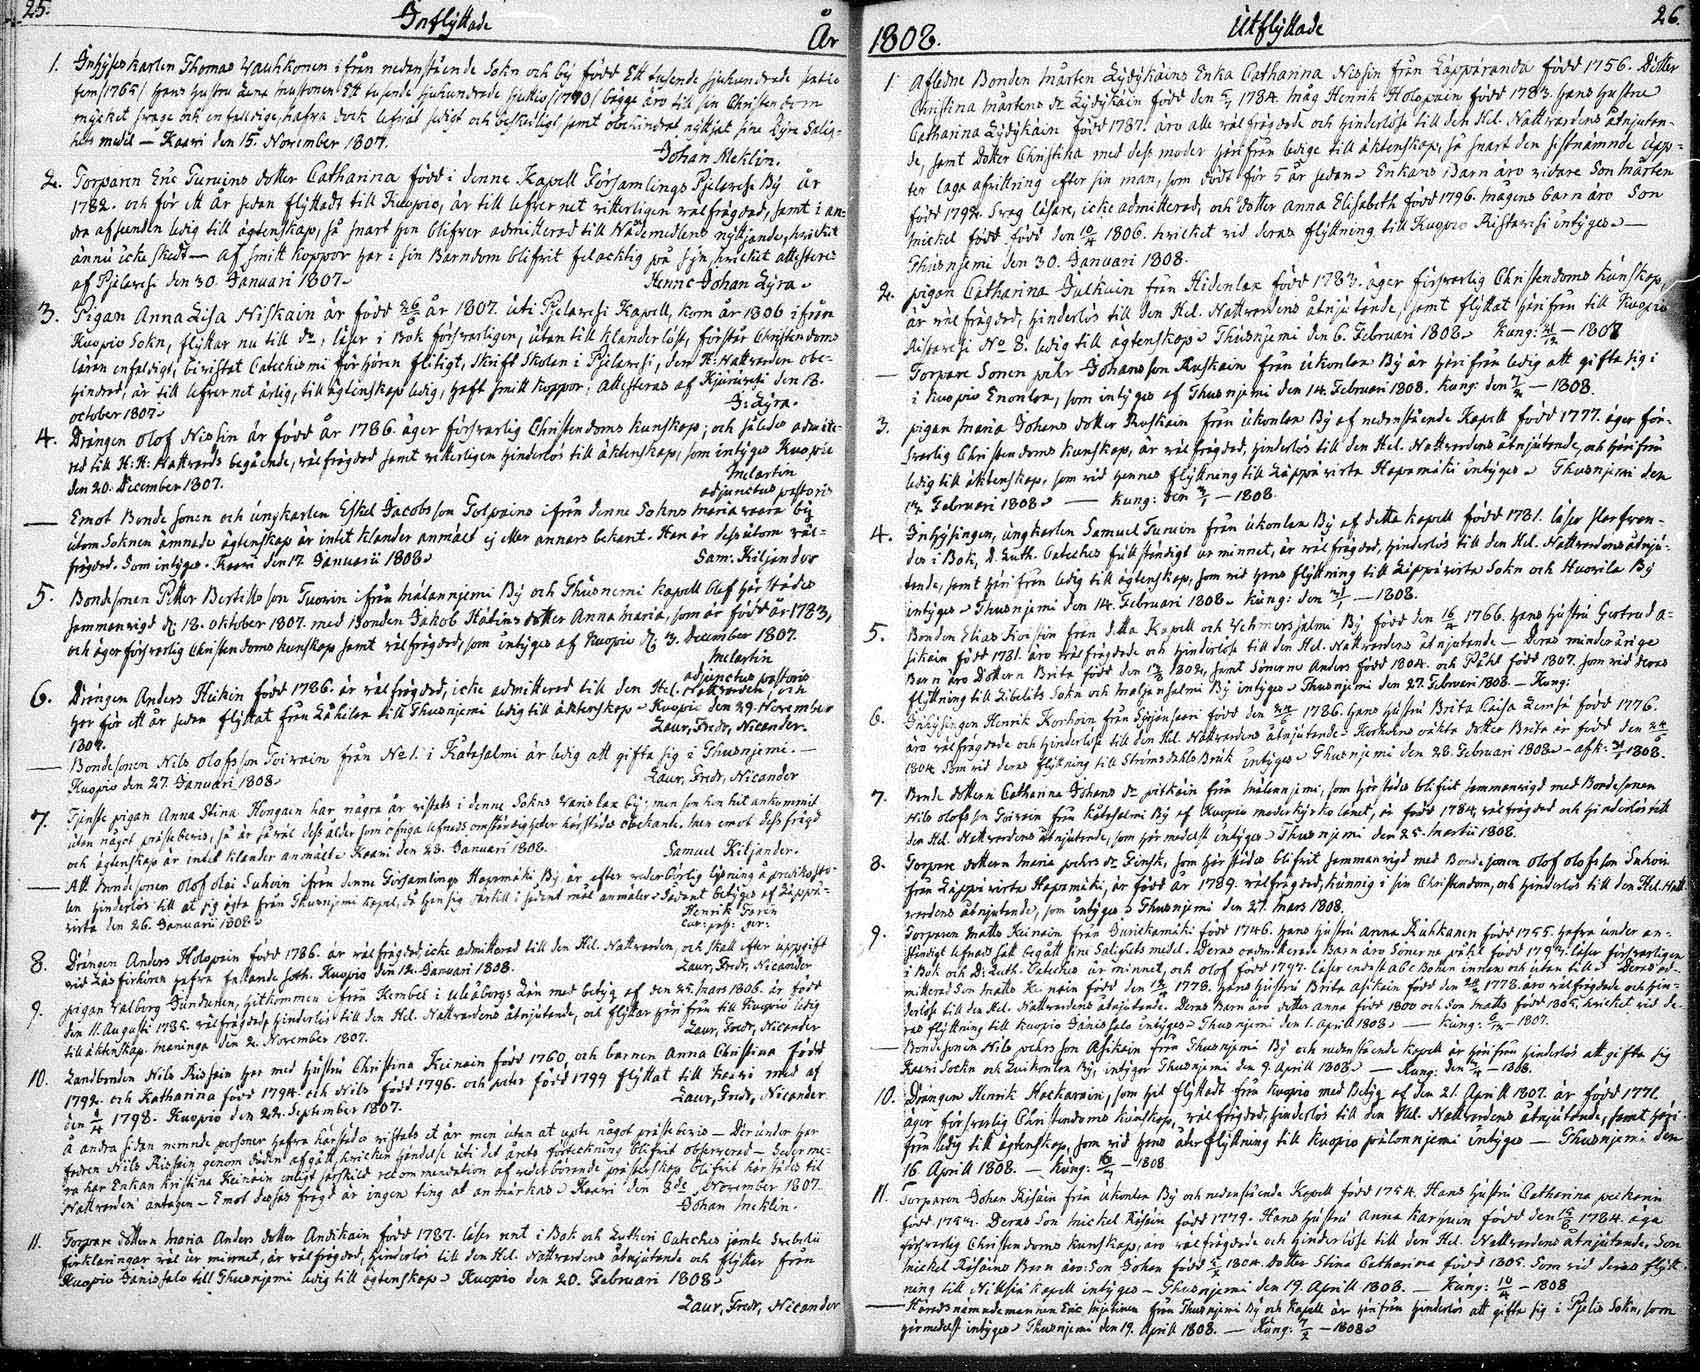 25.
Inflyttade
År
1. Inhyses karlen Thomas Vauhkonen ifrån nedenstående Sokn och by född Ett tusende sjuhundrade sextio
fem /1765/ hans hustru Lena Mustonen Ett tusende sjuhundrade sjuttio /1770/ begge äro till sin Christendom
mycket svage och enfaldige, hafva dock lefvat sedigt och beskedligt samt obehindrat nyttjat sine Dyre Salig-
hets medel — Kaavi den 15. November 1807.
Johan Meklin.
2. Torparen Eric Turuins dotter Catharina född i denne Kapell Församlings Pjelavesi By år
1782. och för ett år sedan flyttadt till Kuopio, är till lefvernet vitterligen välfrägdad, samt i an-
dra afseenden ledig till ägtenskap, så snart hon blifver admitterad till Nådemedlens nyttjande, hvilket
ännu icke skedt — af smitt koppor har i sin Barndom blifvit felacktig på syn, hvilket attesteras
af Pjelavesi den 30. Januari 1807.
Henric Johan Lyra.
3. Pigan Anna Lisa Niskain är född 26/6 år 1807. uti Pjelavesi Kapell, kom år 1806 ifrån
Kuopio Sokn, flyttar nu till do; läser i Bok försvarligen, utan till klanderlöst, förstår Christendoms
läran enfaldigt, bivistat Catechismi förhören flitigt, Skrift Skolen i Pjelavesi, den H: Nattvarden obe-
hindrad, är till lefvernet ärlig, till ägtenskap ledig, haft smitt koppor; attesteras af Kjuruvesi den 18.
october 1807.
J: Lyra.
4. Drängen Olof Nissin är född år 1786. äger försvarlig Christendoms kunskap; och således admitte-
rad till H: H: Nattvards begående, välfrägdad samt vitterligen hinderlös till äktenskap, som intygas Kuopio
den 20. December 1807.
Melartin
adjunctus pastoris
— Emot Bonde sonen och ungkarlen Eskel Jacobsson Tolpains ifrån denne Sokns Maria vaara by
utom Soknen ämnade ägtenskap är intet klander anmält ej eller annars bekant. Han är dessutom väl-
frägdad. Som intygas. Kaavi den 17. Januarii 1808.
Sam: Kiljander
5. Bondesonen Petter Bertilsson Tuovin ifrån Målannjemi By och Thusnemi kapell blef här städes
sammanvigd d. 18. oktober 1807. med bonden Jakob Hätins dotter Anna Maria, som är född år 1783,
och äger försvarlig Christendoms kunskap samt välfrägdad, som intygas af Kuopio d. 3. December 1807.
Melartin
adjunctus pastoris.
6. Drängen Anders Heikin född 1786. är välfrägdad, icke admitterad till den Hel. Nattvarden, och
har för ett år sedan flyttat från till Thusnjemi ledig till äktenskap. Kuopio den 29. November
1807.
Laur, Fredr, Nicander.
— Bondesonen Nils Olofsson Toivain från No 1. i Kätesalmi är ledig att gifta sig i Thusnjemi. —
Kuopio den 27. Januari 1808.
Laur, Fredr, Nicander
7. Tjenste pigan Anna Stina Kongain har några år vistats i denne Sokns Varislax by; men som hon hit ankommit
utan något prästebevis, så är så väl dess ålder som öfriga lefnads omständigheter härstädes obekante. Men emot dess frägd
och ägtenskap är intet klander anmält. Kaavi den 28. Januari 1808.
Samuel Kiljander.
— Att Bondesonen Olof Olai Suhoin ifrån denne Församlings Hapamäki By, är efter vederbörlig lysning å predikosto-
len hinderlös till at sig ägta från Thusnjemi Kapel, då han sig därtill i sådant mål anmäler. Sådant betygas af Läppä-
virta den 26. Januarii 1808.
Henrik Forén
8. Drängen Anders Holopain född 1786. är välfrägdad, icke admitterad till den Hel. Nattvarden, och skall efter uppgift
vid Läsförhören hafva Kuopio den 12. Januari 1808.
Laur, Fredr, Nicander
9. pigan Valborg Hundunen, hitkommen ifrån Kembel i Uleåborgs Län med betyg af den 25. Mars 1806. är född
den 11. Augusti 1785. välfrägdad, hinderlös till den Hel. Nattvardens åtnjutande, och flyttar här ifrån till Kuopio ledig
till äktenskap. Maninga den 2. November 1807.
Laur, Fredr, Nicander
10. Landbonden Nils Rissain har med hustru Christina Keinain född 1760, och barnen Anna Christina född
1792. och Katharina född 1794. och Nils född 1796. och peter född 1799 flyttat till Kaavi med af
den 4/4 1798. Kuopio den 22. September 1807.
Laur, Fredr, Nicander
å andra sidan nemnde personer hafva härstädes vistats et år men utan at upte något prästebevis — Därunder har
fadren Nils Rissain genom döden afgått hvicken händelse uti det årets förteckning blifvit observerad — Seder me-
ra har Enkan Kristina Keinain enligt särskild recommendation af vederbörande prästerskap blifvit härstädes til
Nattvarden antagen — Emot dessas frägd är ingen ting at anmärka. Kaavi den 8de November 1807.
Johan Meklin.
11. Torpare dottern Maria Anders dotter Andikain född 1787. läser rent i Bok och Lutheri Catechés jämte Svebelii
förklaringar väl ur minnet, är välfrägdad, hinderlös till den Hel. Nattvardens åtnjutande och flyttar från
Kuopio Jänissalo till Thusnjemi ledig till ägtenskap. Kuopio den 20. Februari 1808.
Laur, Fredr, Nicander
1808.
Utflyttade
26.
1. Afledne Bonden Mårten Lydykäins Enka Catharina Nissin från Läppäranda född 1756. Dotter
Christina Mårtens dr Lydykäin född den 5/7 1784. Måg Henrik Holopain född 1783. Hans hustru
Catharina Lydykäin född 1787. äro alle välfrägdade och hinderlöse till den Hel. Nattvardens åtnjutan-
de, samt Dotter Christina med dess moder härifrån ledige till äktenskap, så snart den sistnämnde äpp-
ter laga afvittring efter sin man, som dödt för 5 år sedan. Enkans Barn äro vidare Son Mårten
född 1792. Svag läsare, icke admitterad, och dotter Anna Elisabeth född 1796. Mågens barn äro Son
Mickel född född den 10/4 1806. hvilket vid deras flyttning till Kuopio Ristavesi intygas —
Thusnjemi den 30. Januari 1808.
2. pigan Catharina Julkuin från Hidenlax född 1783. äger försvarlig Christendoms kunskap,
är välfrägdad, hinderlös till den Hel. Nattvardens åtnjutande, samt flyttat härifrån till Kuopio
Ristavesi No 8. ledig till ägtenskap. Thusnjemi den 6. Februari 1808. Kung: — 1807
— Torpare Sonen pehr Johansson Ruskain från Ukonlax By är härifrån ledig att gifta sig i
i Kuopio Enonlax, som intygas af Thusnjemi den 14. Februari 1808. Kung: den 7/2 — 1808.
3. pigan Maria Johans dotter Ruskain från Ukonlax By af nedanstående Kapell född 1777. äger för-
svarlig Christendoms kunskap, är välfrägdad, hinderlös till den Hel. Nattvardens åtnjutande, och härifrån
ledig till äktenskap, som vid hennes flyttning till Läppävirta Hapamäki intygas. Thusnjemi den
14. Februari 1808. — Kung: den — 1808
4. Inhysingen, ungkarlen Samuel Turuin från Ukonlax By af detta kapell född 1781. läser
des i Bok, D. Luth. Cateches fullständigt ur minnet, är välfrägdad, hinderlös till den Hel. Nattvardens åtnju-
tande, samt härifrån ledig till ägtenskap, som vid hans flyttning till Läppävirta Sokn och Huorila By
intygas. Thusnjemi den 14. Februari 1808. Kung: den — 1808.
5. Bonden Elias Koistin från detta Kapell och Vehmersalmi By född den 16/4 1766. Hans hustru Gertrud A-
sikain född 1781. äro välfrägdade och hinderlöse till den Hel. Nattvardens åtnjutande — Deras minderårige
Barn äro Dottern Brita född den 1802, samt Sönerne Anders född 1804. och Påhl född 1807. som vid deras
flyttning till Libelits Sokn och Maljasalmi By intygas. Thusnjemi den 27. Februari 1808. — Kung:
6. Inhysingen Henrik Korhoin från Syrjänsaari född den 1786. hans hustru Brita Caisa Lemsä född 1776.
äro välfrägdade och hinderlöse till den Hel. Nattvardens åtnjutande. Korhoins oäkta dotter Brita är född den 24/6
1804. Som vid deras flyttning till Strömsdahls Bruk intygas Thusnjemi den 28. Februari 1808. — afk: 1808.
7. Bonde dottern Catharina Johans dr pitkäin från Målannjemi, som här städes blifvit sammanvigd med Bondesonen
Nils Olofsson Toivain från Kätesalmi By af Kuopio moderkyrko länet, är född 1784, välfrägdad och hinderlös till
den Hel. Nattvardens åtnjutande, som här medelst intygas. Thusnjemi den 25. Martii 1808.
8. Torpare dottern Maria pehrs dr Finsk, som här städes blifvit sammanvigd med Bondesonen Olof Olofsson Suhoin
från Läppävirta Hapamäki, är född år 1789. välfrägdad, kunnig i sin Christendom, och hinderlös till den Hel. Natt-
vardens åtnjutande, som intygas. Thusnjemi den 27. Mars 1808.
9. Torparen Matts Keinain från Juriekamäki född 1746. hans hustru Anna Kuhkanen född 1755. hafva under an-
ständigt lefnads sätt begått sine Salighets medel. Deras oadmitterade Barn äro Sönerne påhl född 1794. läser försvarligen
i Bok och D: Luth. Cateches ur minnet, och olof född 1797. läser endast abc Boken innan och utan till. Deras ad-
mitterad Son Matts Keinain född den 1778. hans hustru Brita Asikain född den 1778. äro välfrägdade och hin-
derlöse till den Hel. Nattvardens åtnjutande. Deras Barn äro dotter Anna född 1800 och Son Matts född 1805, hvilket vid de-
ras flyttning till Kuopio Jänissalo intygas. Thusnjemi den 1. Aprill 1808. — Kung: — 1807.
— Bondesonen Nils pehrsson Asikain från Thusnjemi By och nedanstående kapell är härifrån hinderlös att gifta sig
Kaavi Socken och By, intygar Thusnjemi den 9. Aprill 1808. — Kung: den — 1808.
10. Drängen Henrik Hackarain, som hit flyttadt från Kuopio med Betyg af den 21. Aprill 1807. är född 1771.
äger försvarlig Christendoms kunskap, välfrägdad, hinderlös till den Hel. Nattvardens åtnjutande, samt häri-
från ledig till ägtenskap, som vid hans återflyttning till Kuopio pälonnjemi intygas — Thusnjemi den
16. Aprill 1808. — Kung: — 1808
11. Torparen Johan Räsäin från Ukonlax By och nedanstående Kapell född 1754. Hans hustru Catharina
född 1754. Deras Son Mickel Räsäin född 1779. Hans hustru Anna Karhuin född den 15/8 1784. äga
försvarlig Christendoms kunskap, äro välfrägdade och hinderlöse till den Hel. Nattvardens åtnjutande. Son
Mickel Räsäins Barn äro: Son Johan född 1804. Dotter Stina Catharina född 1805. Som vid deras flytt-
ning till Nilsiä Kapell intygas — Thusnjemi den 19. Aprill 1808. — Kung: 10/4 — 1808
— Häradsnämndemannen Eric Miettinen från Thusnjemi By och Kapell är härifrån hinderlös att gifta sig i Pjelis Sokn, som
härmedelst intygas Thusnjemi den 19. Aprill 1808. — Kung: 7/2 — 1808.